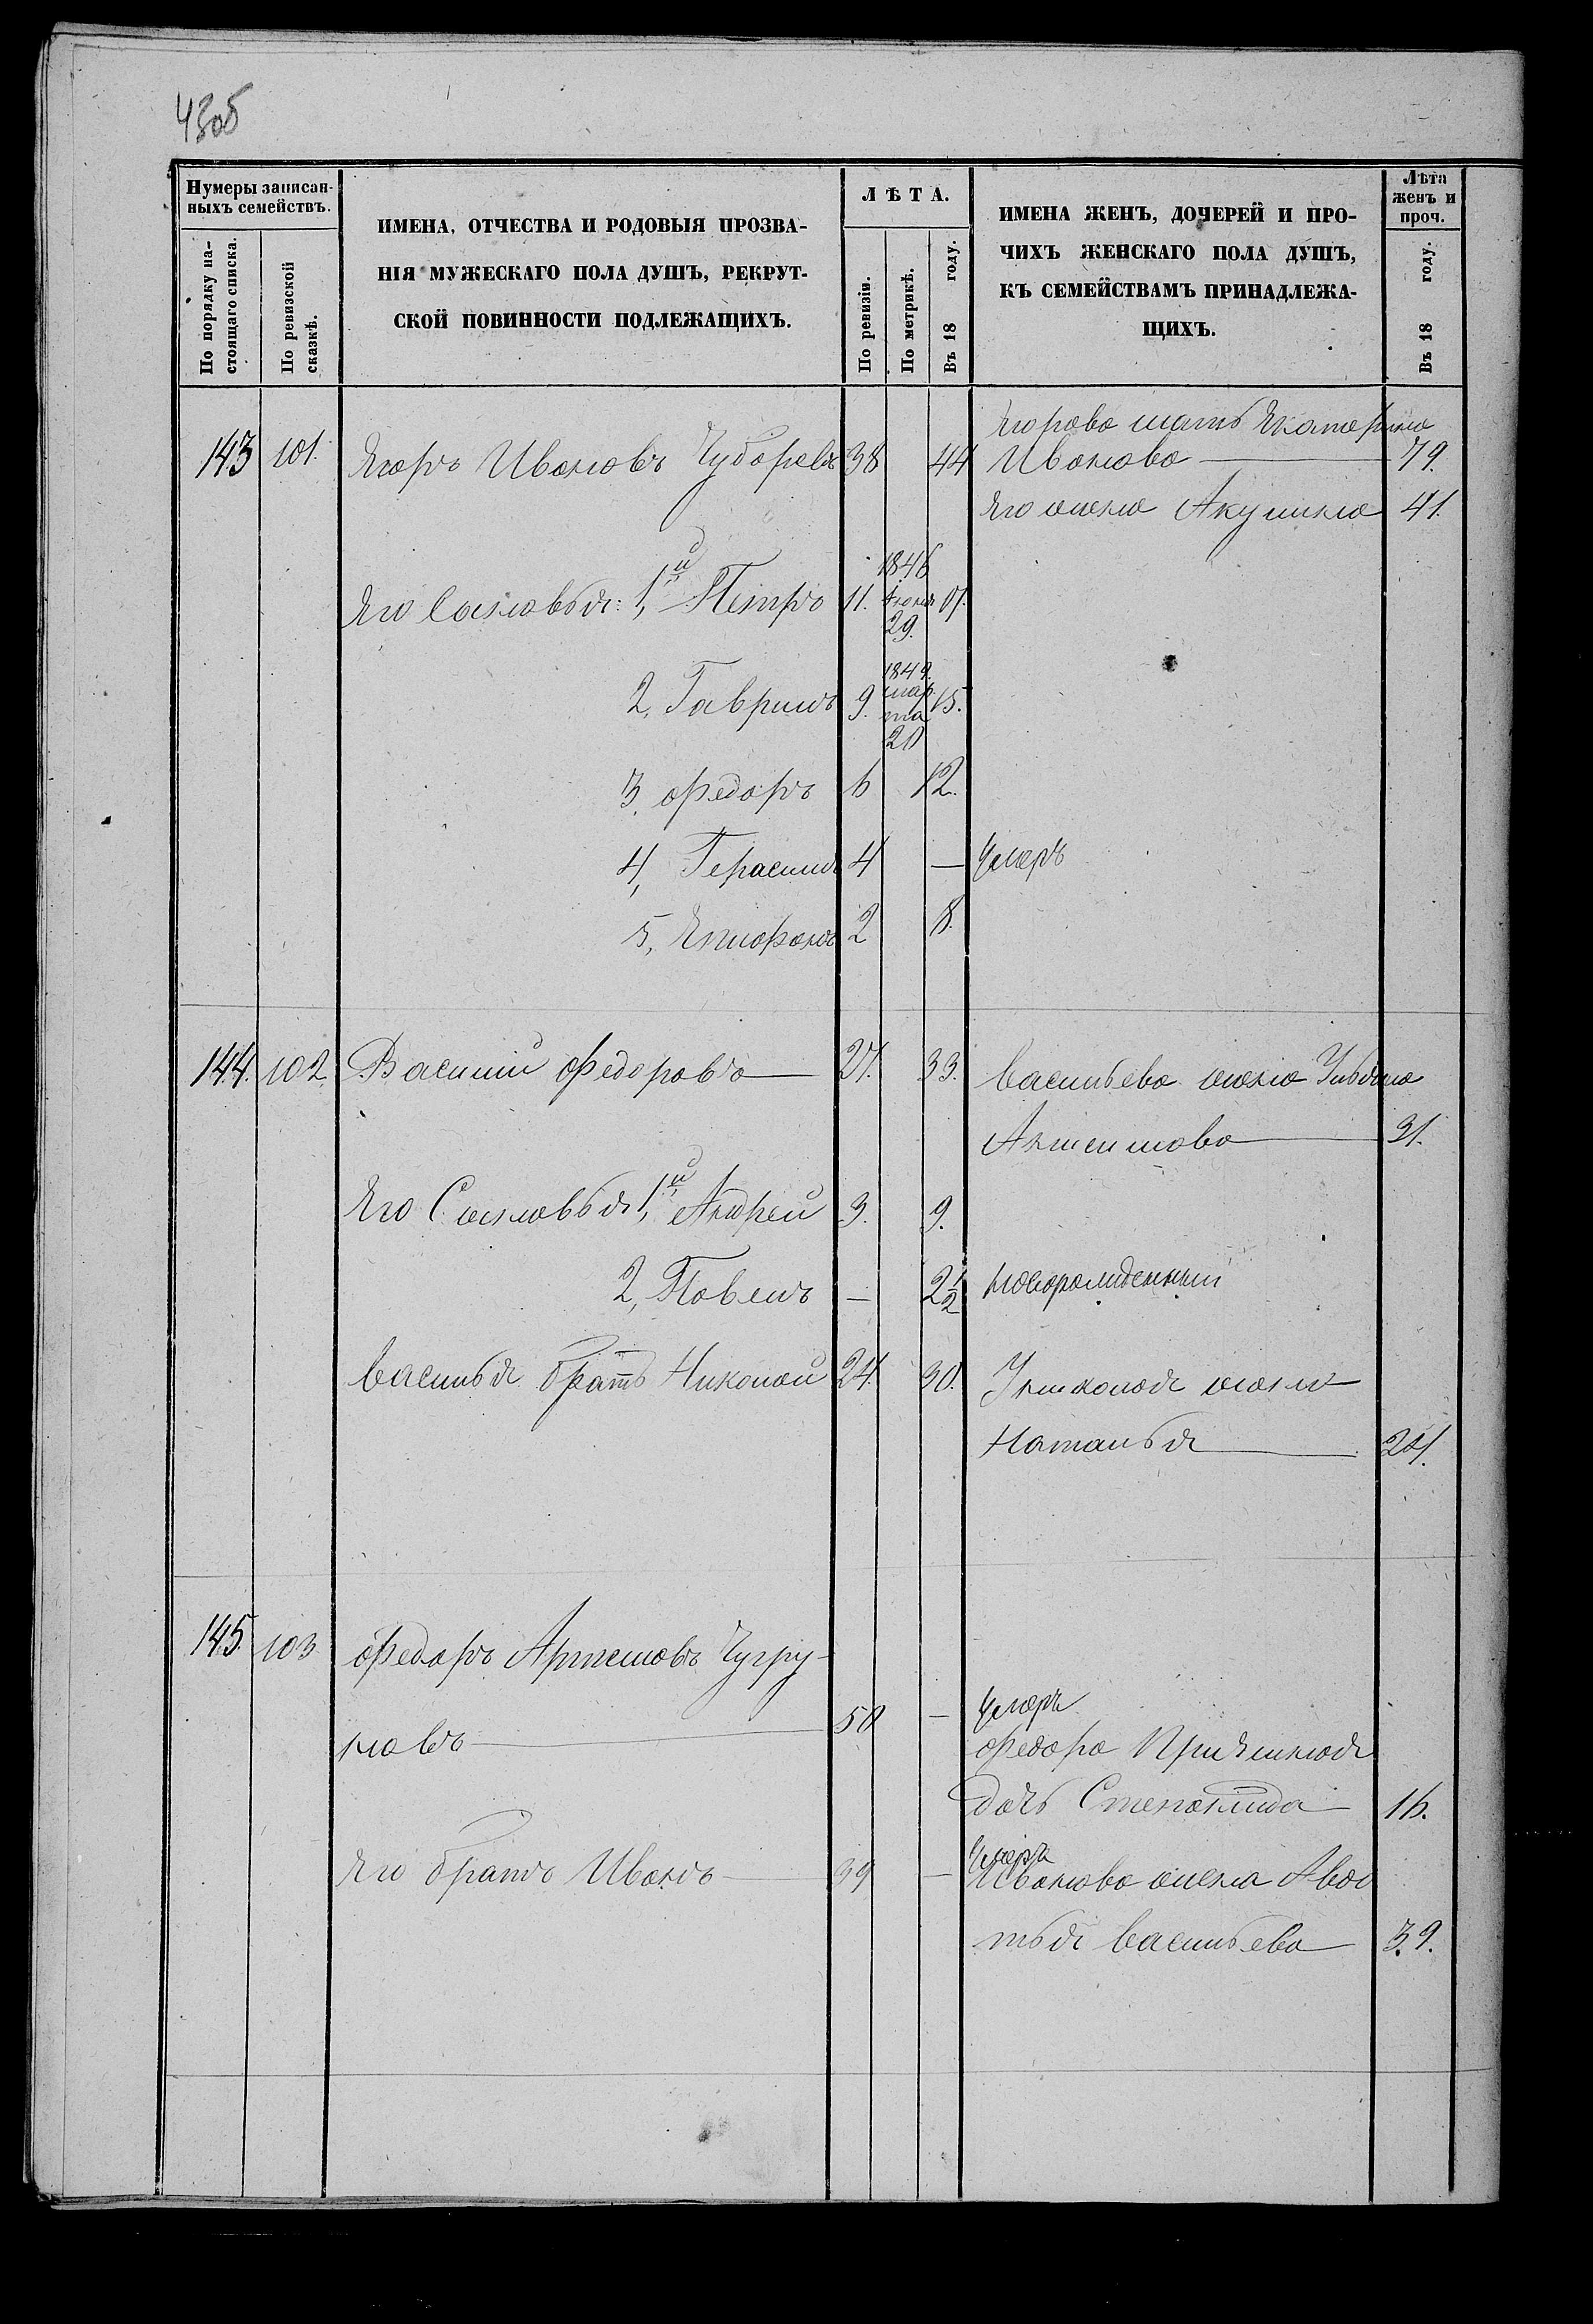 430б
Нумеры записан-
ныхъ семействъ.
По порядку на-
стоящаго списка.
По ревизской
сказкѣ.
ИМЕНА, ОТЧЕСТВА И РОДОВЫЯ ПРОЗВА-
НІЯ МУЖЕСКАГО ПОЛА ДУШЪ, РЕКРУТ-
СКОЙ ПОВИННОСТИ ПОДЛЕЖАЩИХЪ.
ЛѢТА.
По ревизіи.
По метрикѣ.
Въ 18 году.
ИМЕНА ЖЕНЪ, ДОЧЕРЕЙ И ПРО-
ЧИХЪ ЖЕНСКАГО ПОЛА ДУШЪ,
КЪ СЕМЕЙСТВАМЪ ПРИНАДЛЕЖА-
ЩИХЪ.
Лѣта
женъ и
проч.
Въ 18 году.
Егорова мать Екатерина
143 101. Егоръ Ивановъ 38 44 Иванова 79.
Его жена Акулина 41.
1846
Его Сыновья: 1й Петръ 11. Іюня 17.
29.
1849.
2, Гаврилъ 9. мар 15.
та
20
3, Федоръ 6 12.
4, Герасимъ 4 — Умеръ
5, Епифанъ 2 8.
144. 102. Василий Федоровъ 27. 33. Васильева жена Ульяна
31.
Его Сыновья 1й Андрей 3. 9.
2, Павелъ — 2½ новорожденный
Василья братъ Николай 24. 30. У Николая жена
Наталья 24.
145. 103 Федоръ Артемовъ Чугру-
новъ 50 — Умеръ
Федора Пріемная
дочь Степанида 16.
Его братъ Иванъ 39 — Умеръ
Иванова жена Авдо
тья Васильева 39.